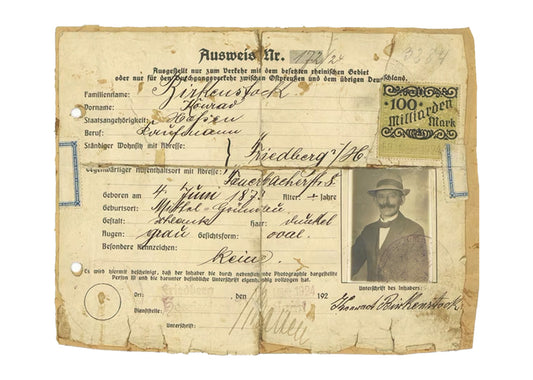 Ausweis Nr. 172/24
3384
Ausgestellt nur zum Verkehr mit dem besetzten rheinischen Gebiet
oder nur für den Durchgangsverkehr zwischen Ostpreußen und dem übrigen Deutschland.
Familienname: Birkenstock
Vorname: Konrad
Staatsangehörigkeit: Hessen
Beruf: Kaufmann
Ständiger Wohnsitz mit Adresse: } Friedberg i/H.
100
Milliarden
Mark
Gegenwärtiger Aufenthaltsort mit Adresse: Fauerbacherstr. 8
Geboren am 4. Juni 1873 Alter: Jahre
Geburtsort: Mittel-Gründau
Gestalt: schlank Haar: dunkel
Augen: grau Gesichtsform: oval
Besondere Kennzeichen:
keine
Es wird hiermit bescheinigt, daß der Inhaber die durch nebenstehende Photographie dargestellte
Person ist und die darunter befindliche Unterschrift eigenhändig vollzogen hat.
Unterschrift des Inhabers:
Konrad Birkenstock
Ort: den 192
Dienststelle:
Unterschrift: